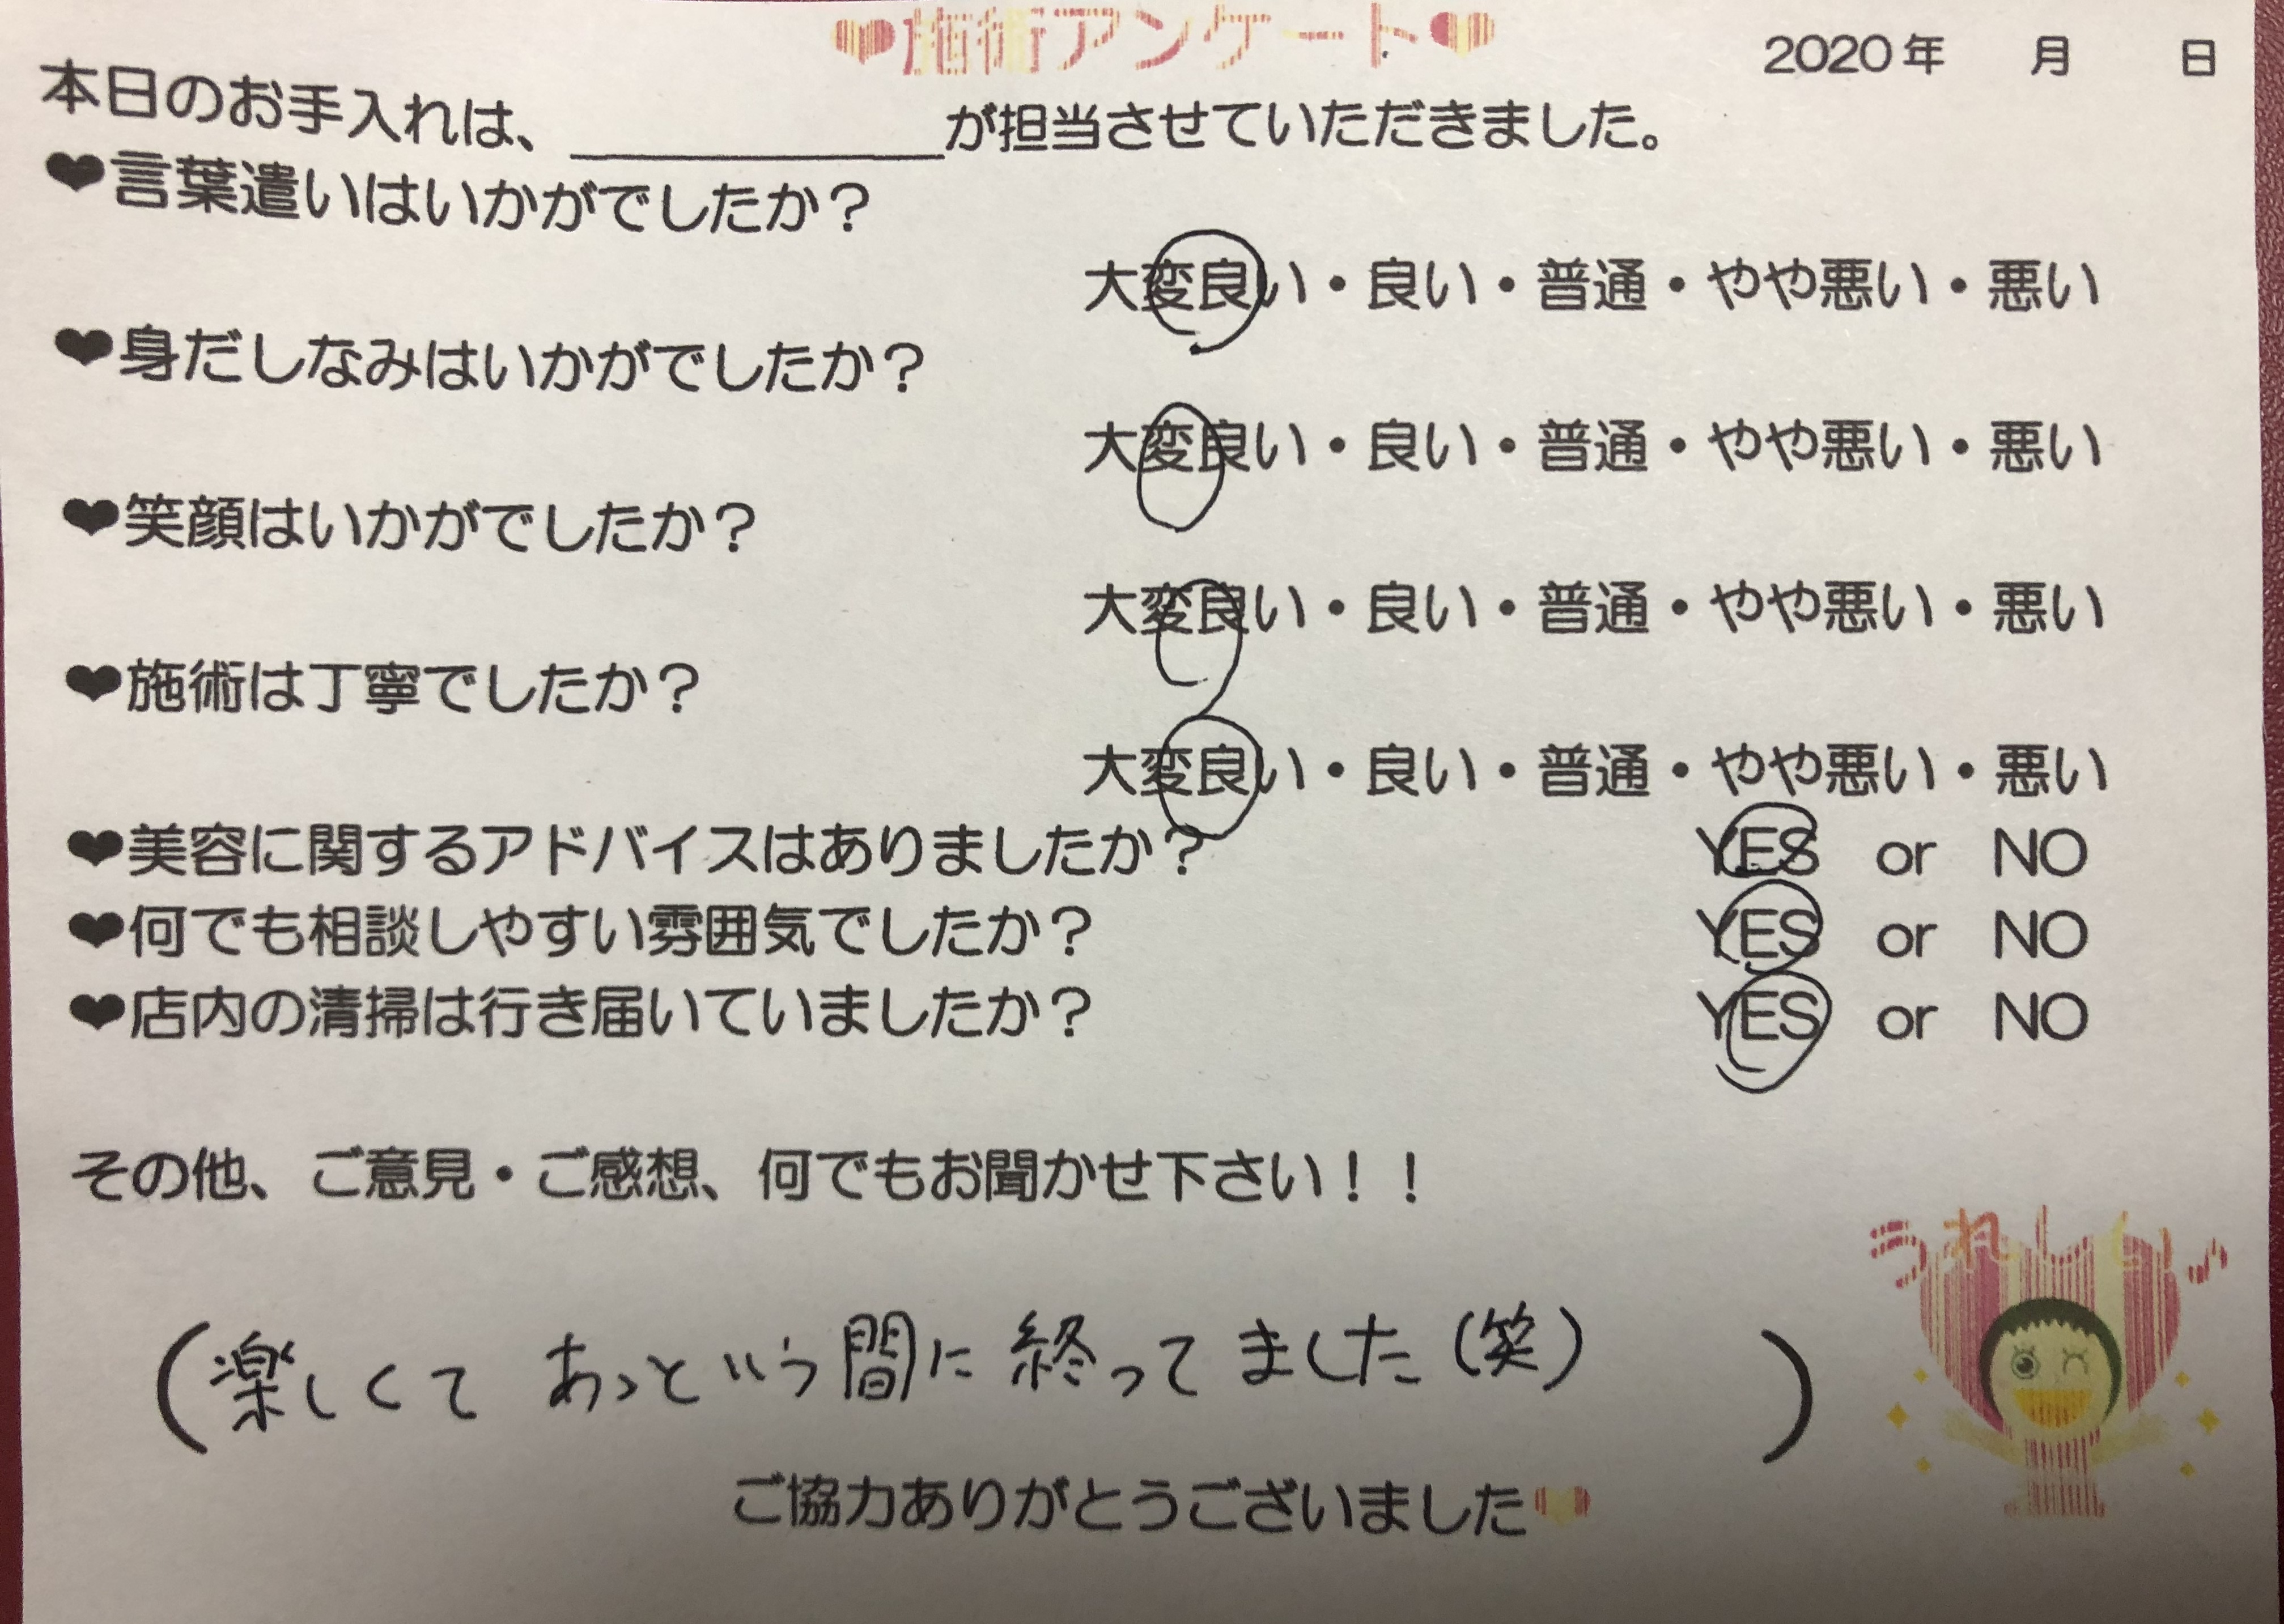 ❤施術アンケート❤
2020年　月　日
本日のお手入れは、＿＿＿＿＿＿が担当させていただきました。
❤言葉遣いはいかがでしたか？
大変良い・良い・普通・やや悪い・悪い
❤身だしなみはいかがでしたか？
大変良い・良い・普通・やや悪い・悪い
❤笑顔はいかがでしたか？
大変良い・良い・普通・やや悪い・悪い
❤施術は丁寧でしたか？
大変良い・良い・普通・やや悪い・悪い
❤美容に関するアドバイスはありましたか？ YES or NO
❤何でも相談しやすい雰囲気でしたか？ YES or NO
❤店内の清掃は行き届いていましたか？ YES or NO
その他、ご意見・ご感想、何でもお聞かせ下さい！！
うれしい♪
（楽しくて あっという間に 終ってました（笑））
ご協力ありがとうございました❤